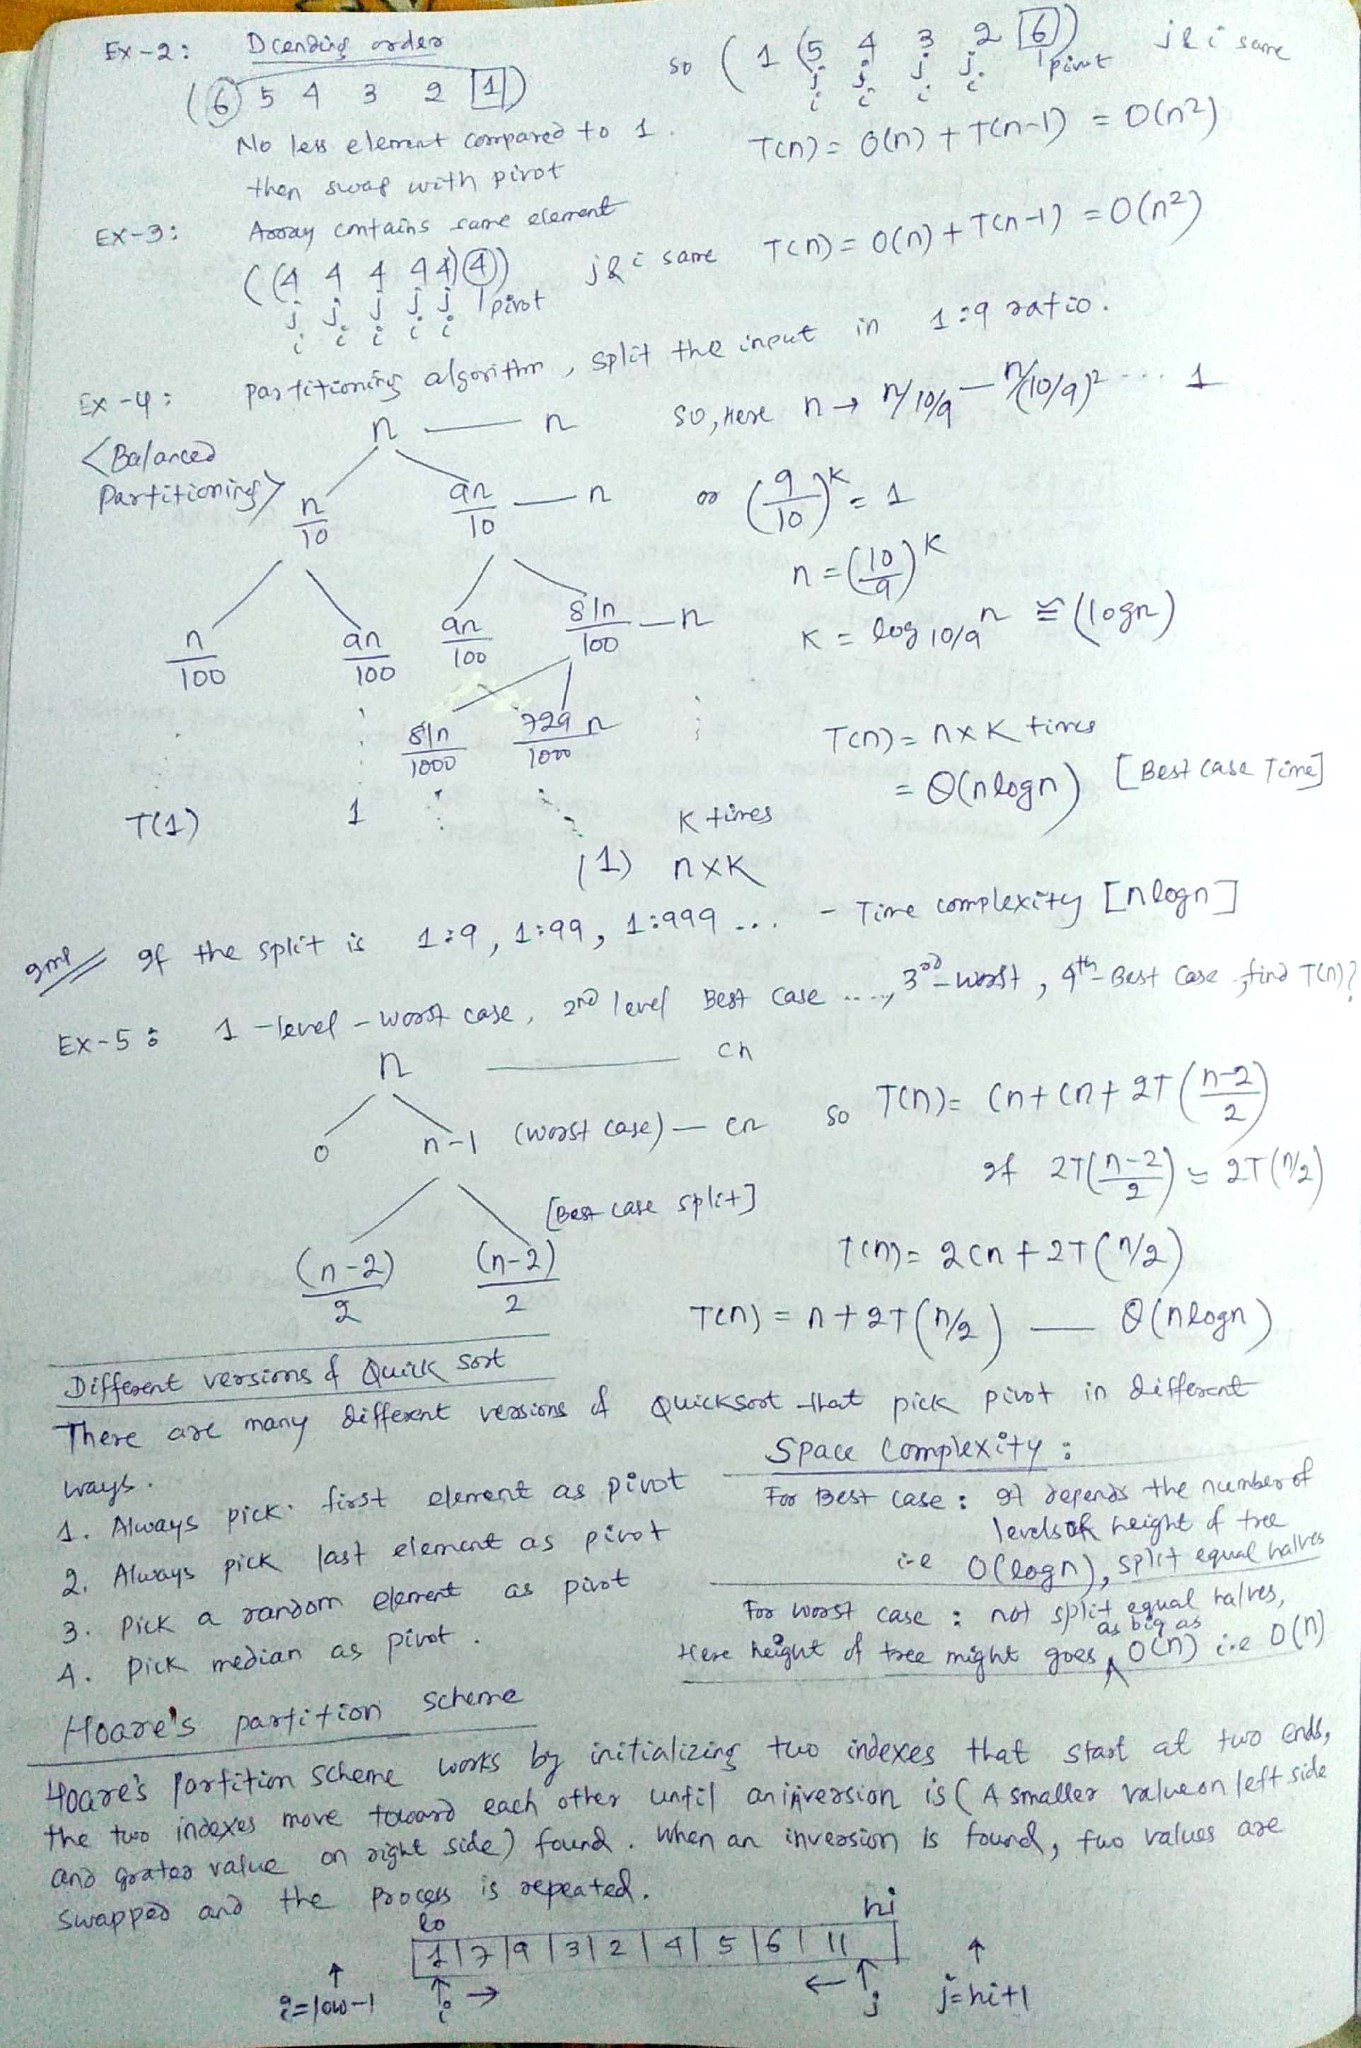 Ex-2: Dcending order
(6 5 4 3 2 1)
No less element compared to 1.
then swap with pivot
so (1 (5 4 3 2 6)) j & i same
j j j j pivot
i i i i
T(n) = O(n) + T(n-1) = O(n²)
Ex-3: Array contains same element
((4 4 4 4 4) 4) j & i same T(n) = O(n) + T(n-1) = O(n²)
j j j j j pivot
i i i i i
Ex-4: Partitioning algorithm, split the input in 1:9 ratio.
<Balanced Partitioning>
n — n
n/10 9n/10 — n
n/100 9n/100 9n/100 81n/100 — n
81n/1000 729n/1000
T(1) 1 K times
(1) n×K
so, Here n → n/10/9 — n/(10/9)² ... 1
or (9/10)^K = 1
n = (10/9)^K
K = log 10/9 n ≅ (logn)
T(n) = n×K times
= Θ(nlogn) [Best case Time]
Imp // If the split is 1:9, 1:99, 1:999 ... - Time complexity [nlogn]
Ex-5: 1-level - worst case, 2nd level Best case ...., 3rd-worst, 4th-Best Case, find T(n)?
n — cn
0 n-1 (worst case) — cn
[Best case split]
(n-2)/2 (n-2)/2
so T(n) = Cn + Cn + 2T((n-2)/2)
If 2T((n-2)/2) ≃ 2T(n/2)
T(n) = 2Cn + 2T(n/2)
T(n) = n + 2T(n/2) — Θ(nlogn)
Different versions of Quick Sort
There are many different versions of Quicksort that pick pivot in different
ways.
1. Always pick first element as pivot
2. Always pick last element as pivot
3. Pick a random element as pivot
4. Pick median as pivot.
Space Complexity:
For Best case: It depends the number of
levels or height of tree
i.e O(logn), split equal halves
For worst case: not split equal halves,
Here height of tree might goes as big as O(n) i.e O(n)
Hoare's partition scheme
Hoare's Partition Scheme works by initializing two indexes that start at two ends,
the two indexes move toward each other until an inversion is (A smaller value on left side
and grater value on right side) found. When an inversion is found, two values are
swapped and the process is repeated.
lo hi
1 7 9 3 2 4 5 6 11
i=low-1 i → ← j j=hi+1